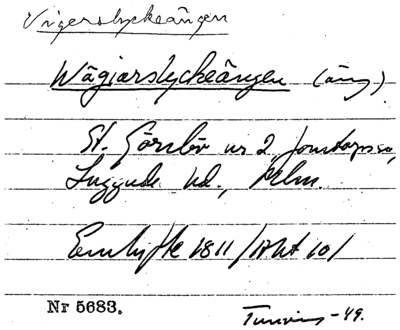 Vigerslyckeängen
Wägiarslyckeängen (äng)
St. Görslöv nr 2, Jonstorps sn,
Luggude hd., Mlm.
Enskifte 1811/Akt 10/
Nr 5683.
Tuneving -49.